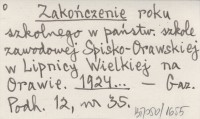 Zakończenie roku
szkolnego w państw. szkole
zawodowej Spisko-Orawskiej
w Lipnicy Wielkiej na
Orawie. 1924... — Gaz.
Podh. 12, nr 35.